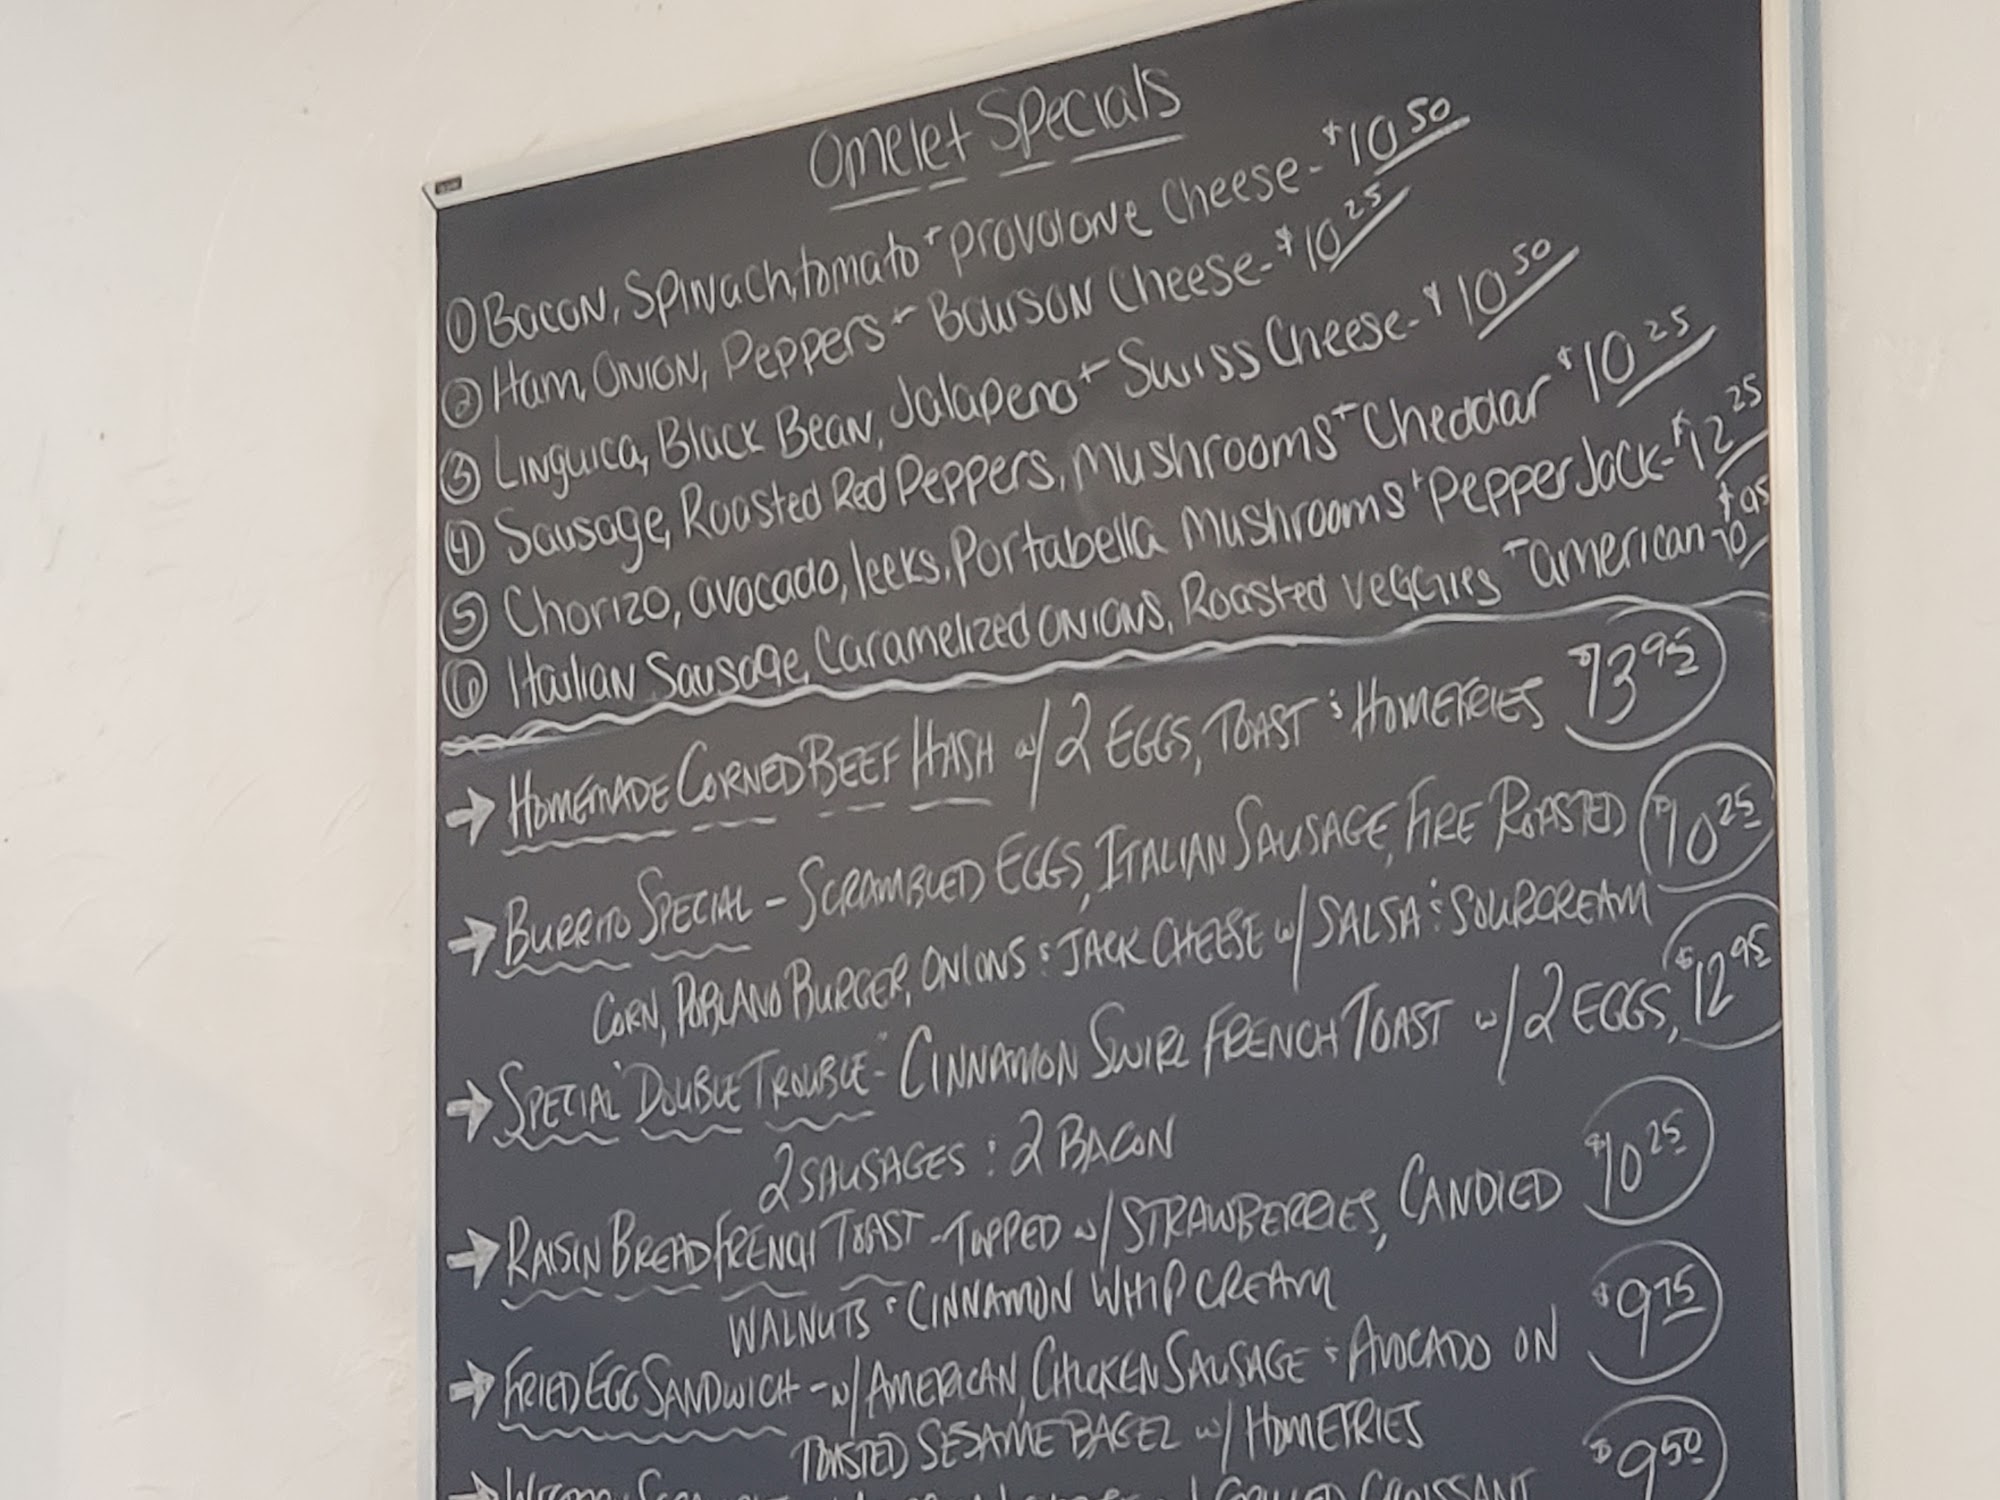 Omelet Specials
① Bacon, Spinach, tomato + provolone Cheese - $10 50
② Ham, Onion, Peppers + Bowson Cheese - $10 25
③ Linguica, Black Bean, Jalapeno + Swiss Cheese - $10 50
④ Sausage, Roasted Red Peppers, Mushrooms + Cheddar $10 25
⑤ Chorizo, avocado, leeks, Portabella Mushrooms + Pepper Jack - $12 25
⑥ Itailian Sausage, Caramelized Onions, Roasted veggies + american - $10 95
→ HOMEMADE CORNED BEEF HASH w/ 2 EGGS, TOAST & HOMEFRIES $13 95
→ BURRITO SPECIAL - SCRAMBLED EGGS, ITALIAN SAUSAGE, FIRE ROASTED $10 25
CORN, POBLANO BURGER, ONIONS & JACK CHEESE w/ SALSA & SOURCREAM
→ SPECIAL "DOUBLE TROUBLE" - CINNAMON SWIRL FRENCH TOAST w/ 2 EGGS, $12 95
2 SAUSAGES & 2 BACON
→ RAISIN BREAD FRENCH TOAST - TOPPED w/ STRAWBERRIES, CANDIED $10 25
WALNUTS & CINNAMON WHIP CREAM
→ FRIED EGG SANDWICH - w/ AMERICAN, CHICKEN SAUSAGE & AVOCADO ON $9 75
TOASTED SESAME BAGEL w/ HOMEFRIES
GRILLED CROISSANT $9 50